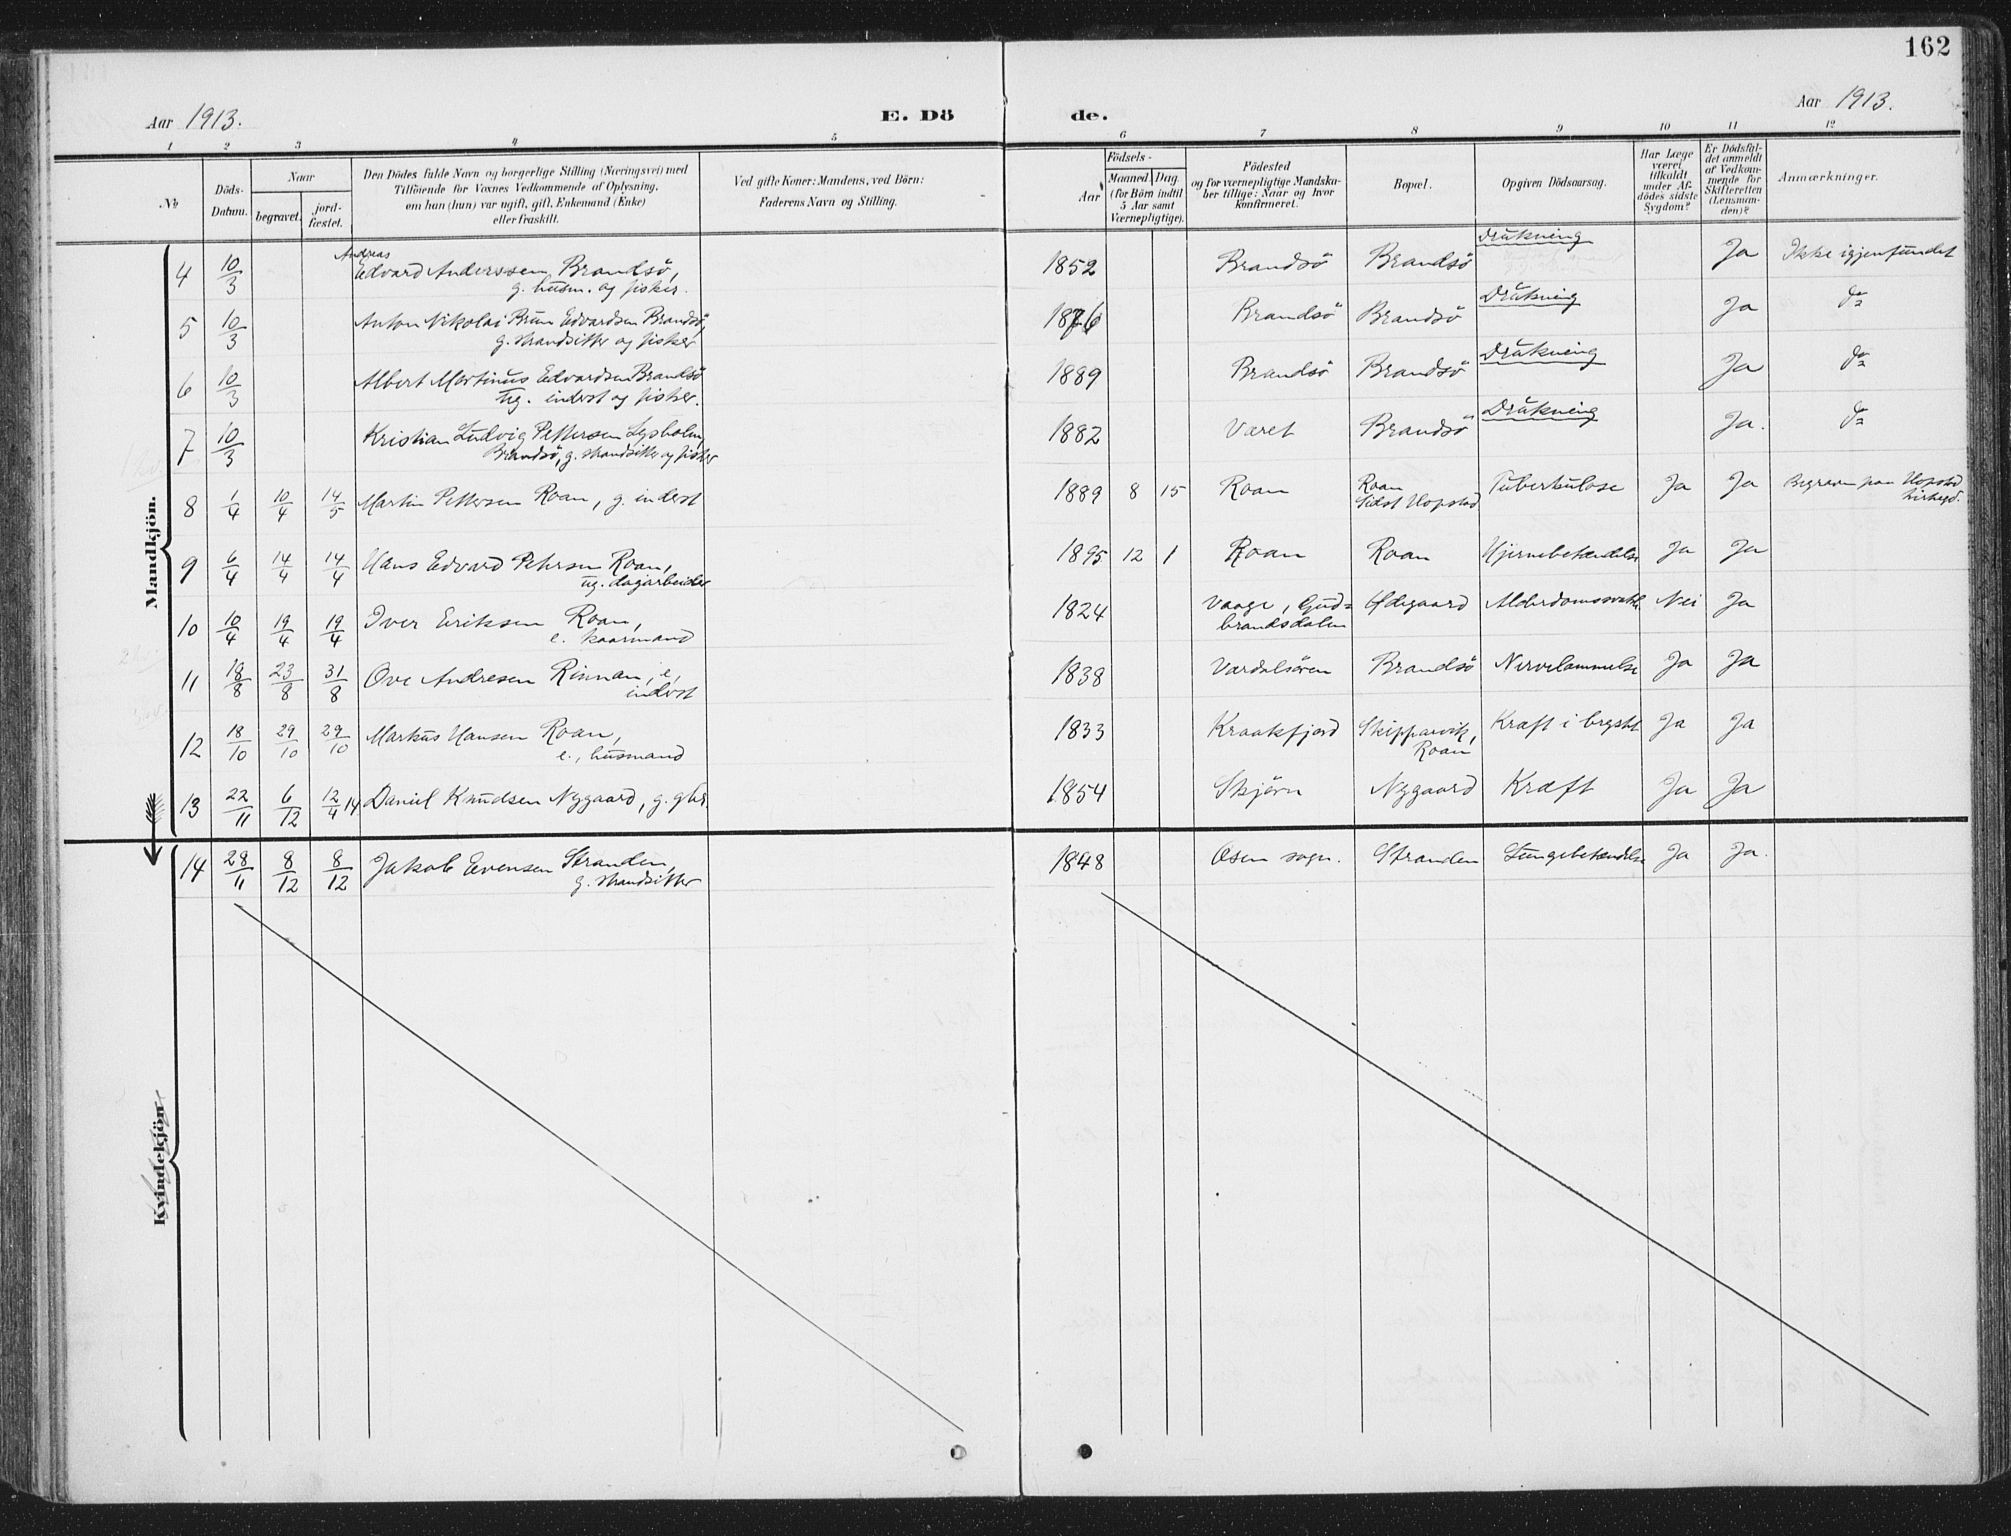 162
Aar 1913.
E. Döde.
Aar 1913.
1 2 3 4 5 6 7 8 9 10 11 12
No
Döds-Datum.
Naar
begravet.
jord-fæstet.
Den Dödes fulde Navn og borgerlige Stilling (Næringsvei) med
Tilföiende for Voxnes Vedkommende af Oplysning,
om han (hun) var ugift, gift, Enkemand (Enke)
eller fraskilt.
Ved gifte Koner: Mandens, ved Börn:
Faderens Navn og Stilling.
Födsels-
Aar
Maaned. Dag.
(for Börn indtil
5 Aar samt
Værnepligtige).
Födested
og for værnepligtige Mandska-
ber tillige: Naar og hvor
konfirmeret.
Bopæl.
Opgiven Dödsaarsag.
Har Læge
været
tilkaldt
under Af-
dödes sidste
Sygdom?
Er Dödsfal-
det anmeldt
af Vedkom-
mende for
Skifteretten
(Lensman-
den)?
Anmærkninger.
Mandkjön.
Andreas
4 10/3 Edvard Anderssen Brandsö, 1852 Brandsö Brandsö Drukning Ja Ikke igjenfundet
g. husm. og fisker.
5 10/3 Anton Nikolai Brun Edvardsen Brandsö, 1876 Brandsö Brandsö Drukning Ja do
g. strandsitter og fisker
6 10/3 Albert Martinus Edvardsen Brandsö 1889 Brandsö Brandsö Drukning Ja do
ug. inderst og fisker.
7 10/3 Kristian Ludvig Pettersen Lysholm, 1882 Været Brandsö Drukning Ja. do
Brandsö, g. strandsitter og fisker
8 1/4 10/4 14/5 Martin Pettersen Roan, g. inderst 1889 8 15 Roan Roan Tuberkulose Ja Ja Begraven paa Hopstad
Sidst Hopstad kirkegd.
9 6/4 14/4 14/4 Hans Edvard Petersen Roan, 1895 12 1 Roan Roan Hjernebetændelse Ja Ja
ug. dagarbeider
10 10/4 19/4 19/4 Iver Eriksen Roan, 1824 Vaage, Gud= Ödegaard Alderdomssvakh. Nei Ja
e. kaarmand brandsdalen
11 18/8 23/8 31/8 Ove Andresen Rinnan, e, 1838 Værdalsören Brandsö Nervelammelse Ja Ja
inderst
12 18/10 29/10 29/10 Markus Hansen Roan, 1833 Kraakfjord Skipparvik, Kræft i brystet Ja Ja
e., husmand Roan
13 22/11 6/12 12/4 14 Daniel Knudsen Nygaard, g. gbr. 1854 Skjörn Nygaard Kræft Ja Ja
14 28/11 8/12 8/12 Jakob Evensen Stranden, 1848 Osen sogn. Stranden Lungebetændelse Ja Ja.
g. strandsitter
Kvindekjön